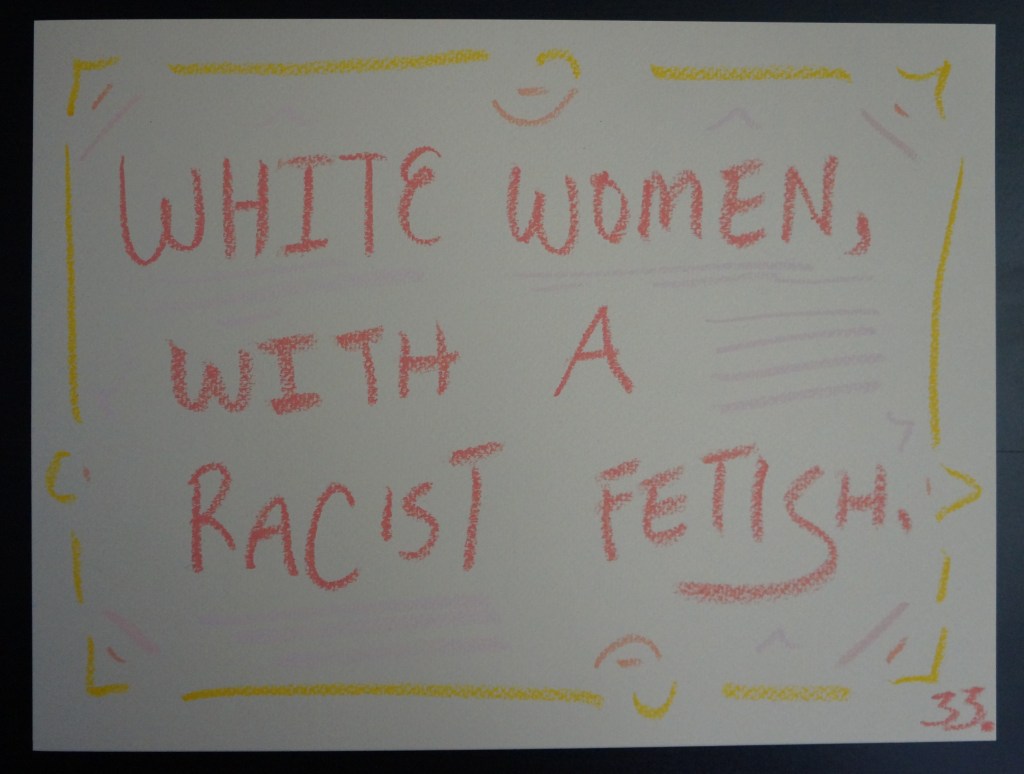 WHITE WOMEN,
WITH A
RACIST FETISH.
33.